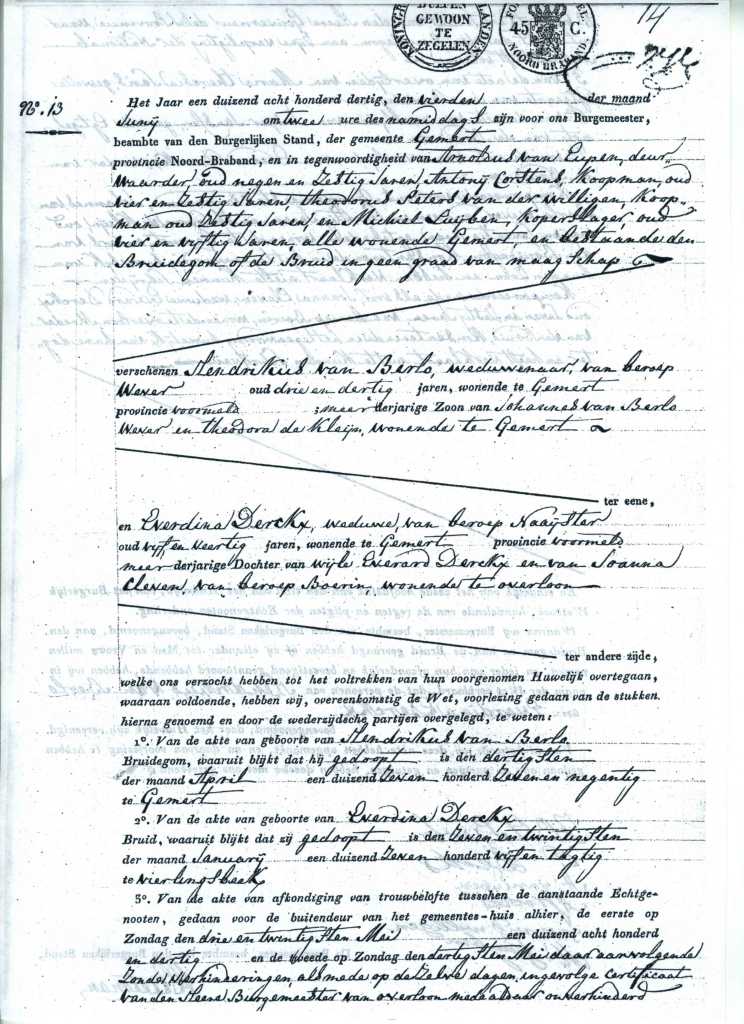 BUITEN
GEWOON
TE
ZEGELEN
45 C.
NOORD BRABAND
14
N°. 13
Het Jaar een duizend acht honderd dertig, den vierden der maand
Junij om twee ure des namiddags zijn voor ons Burgemeester,
beambte van den Burgerlijken Stand, der gemeente Gemert
provincie Noord-Braband, en in tegenwoordigheid van Arnoldus van Eupen, deur-
waarder, oud negen en Zestig Jaren, Antonij Corstens, Koopman, oud
vier en Zestig Jaren, theodorus Peters van der willigen, Koop-
man oud Zestig Jaren, en Michiel Luijben, koperslager, oud
vier en vijftig Jaren, alle wonende Gemert, en bestaande den
Bruidegom of de Bruid in geen graad van maagschap
verschenen Hendrikus van Berlo, weduwenaar, van beroep
Wever oud drie en dertig jaren, wonende te Gemert
provincie voormeld ; meer derjarige Zoon van Johannes van Berlo
Wever en theodora de Kleijn, wonende te Gemert
ter eene,
en Everdina Derckx, weduwe, van beroep Naaijster
oud vijf en veertig jaren, wonende te Gemert provincie voormeld
meer derjarige Dochter van wijle Everard Derckx en van Joanna
Cleven, van beroep Boerin wonende te overloon
ter andere zijde,
welke ons verzocht hebben tot het voltrekken van hun voorgenomen Huwelijk overtegaan,
waaraan voldoende, hebben wij, overeenkomstig de Wet, voorlezing gedaan van de stukken
hierna genoemd en door de wederzijdsche partijen overgelegd, te weten:
1°. Van de akte van geboorte van Hendrikus van Berlo
Bruidegom, waaruit blijkt dat hij gedoopt is den dertigsten
der maand April een duizend Zeven honderd Zeven en negentig
te Gemert
2°. Van de akte van geboorte van Everdina Derckx
Bruid, waaruit blijkt dat zij gedoopt is den Zeven en twintigsten
der maand January een duizend Zeven honderd vijf en tagtig
te vierlingsbeek
3°. Van de akte van afkondiging van trouwbelofte tusschen de aanstaande Echtge-
nooten, gedaan voor de buitendeur van het gemeentes-huis alhier, de eerste op
Zondag den drie en twintigsten Mei een duizend acht honderd
en dertig en de tweede op Zondag den dertigsten Mei daar aanvolgende
Zonder verhinderingen, als mede op de Zelve dagen, ingevolge certificaat
van den Heere Burgemeester van overloon mede aldaar onverhinderd